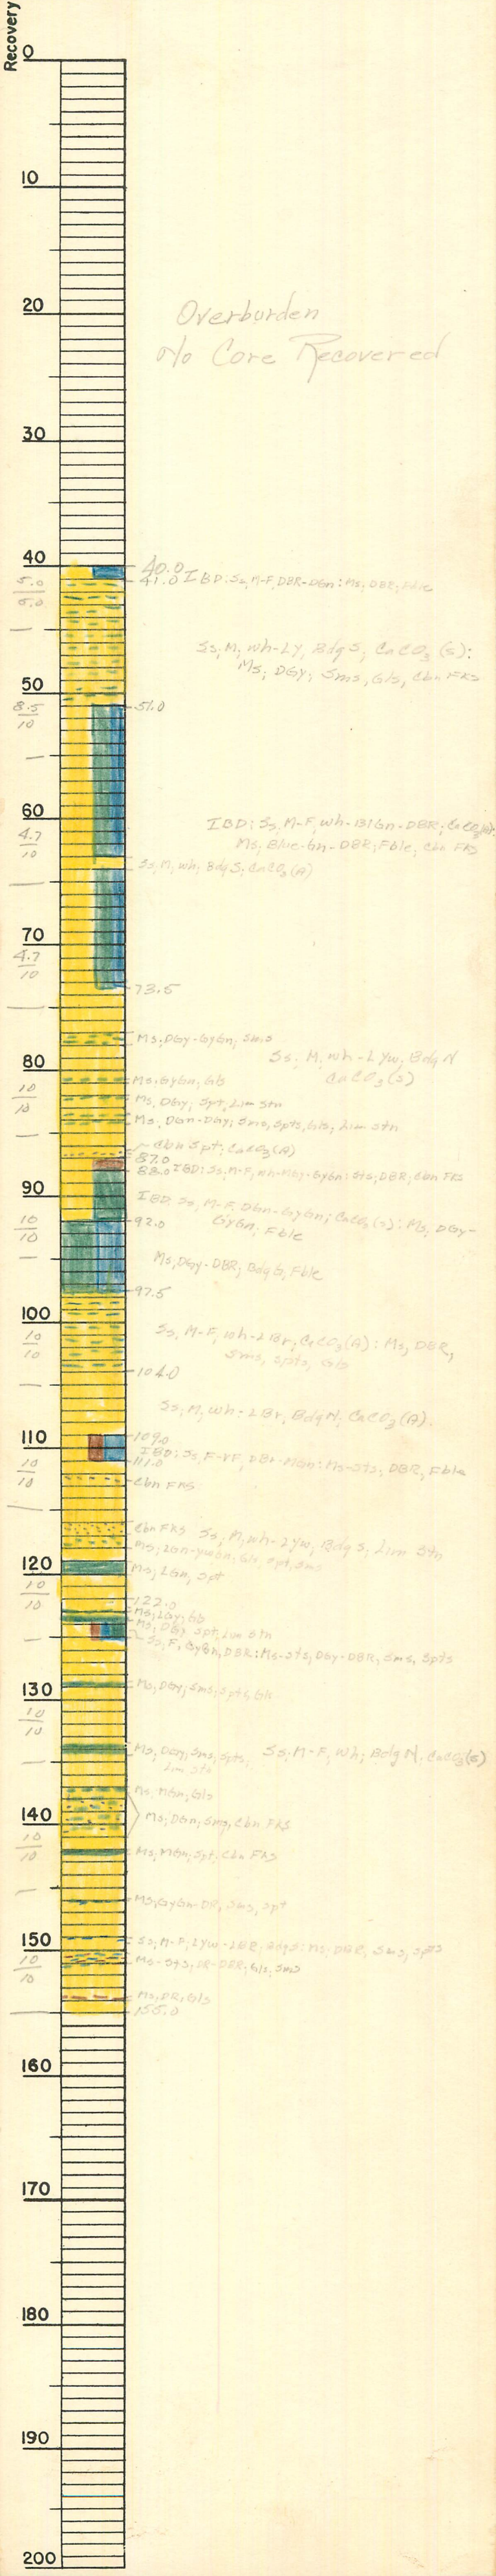 Recovery
0
10
20
Overburden
No Core Recovered
30
40
40.0
41.0 IBD: Ss, M-F, DBR-DGn: Ms, DBR, Fble
5.0
5.0
Ss, M, wh-LY, Bdg S, CaCO3 (s):
Ms; DGy; Sms, Gls, Cbn FKS
50
51.0
8.5
10
60
IBD: Ss, M-F, wh-BlGn-DBR; CaCO3
Ms, Blue-Gn-DBR; Fble; Cbn FKS
4.7
10
Ss, M, wh, Bdg S, CaCO3 (A)
70
4.7
10
73.5
Ms, DGy-GyGn, Sms
Ss, M, wh-LYw, Bdg N
CaCO3 (s)
80
Ms, GyGn, Gls
10
10
Ms, DGy, Spt, Lim Stn
Ms, DGn-DGy, Sms, Spts, Gls, Lim Stn
Cbn Spt, CaCO3 (A)
87.0
88.0 IBD: Ss, M-F, GyGn: Sts, DBR, Cbn FKS
90
IBD: Ss, M-F, DGn-GyGn; CaCO3 (s): Ms, DGy-
GyGn, Fble
92.0
10
10
Ms, DGy-DBR, Bdg G, Fble
97.5
100
Ss, M-F, wh-LBr, CaCO3 (A): Ms, DBR,
Sms, Spts, Gls
10
10
104.0
Ss, M, wh-LBr, Bdg N, CaCO3 (A).
109.0
110
IBD: Ss, F-VF, DBr-MGn: Ms-Sts, DBR, Fble
111.0
10
10
Cbn FKS
Cbn FKS Ss, M, wh-LYw, Bdg S, Lim Stn
Ms, Gls, Spt, Sms
120
Ms, LGn, Spt
10
10
122.0
Ms, LGy, Gls
Ms, DGy, Spt, Lim Stn
Ss, F, GyGn, DBR: Ms-Sts, DGy-DBR, Sms, Spts
130
Ms, DGy, Sms, Spts, Gls
10
10
Ms, DGn, Sms, Spts,
Lim Stn
Ss, M-F, Wh, Bdg N, CaCO3 (s)
Ms, MGn, Gls
140
Ms, DGn, Sms, Cbn FKS
10
10
Ms, MGn, Spt, Cbn FKS
Ms, GyGn-DR, Sms, Spt
150
Ss, M-F, LYw-LBR, Bdg S: Ms, DBR, Sms, Spts
Ms-Sts, DR-DBR, Gls, Sms
10
10
Ms, DR, Gls
155.0
160
170
180
190
200